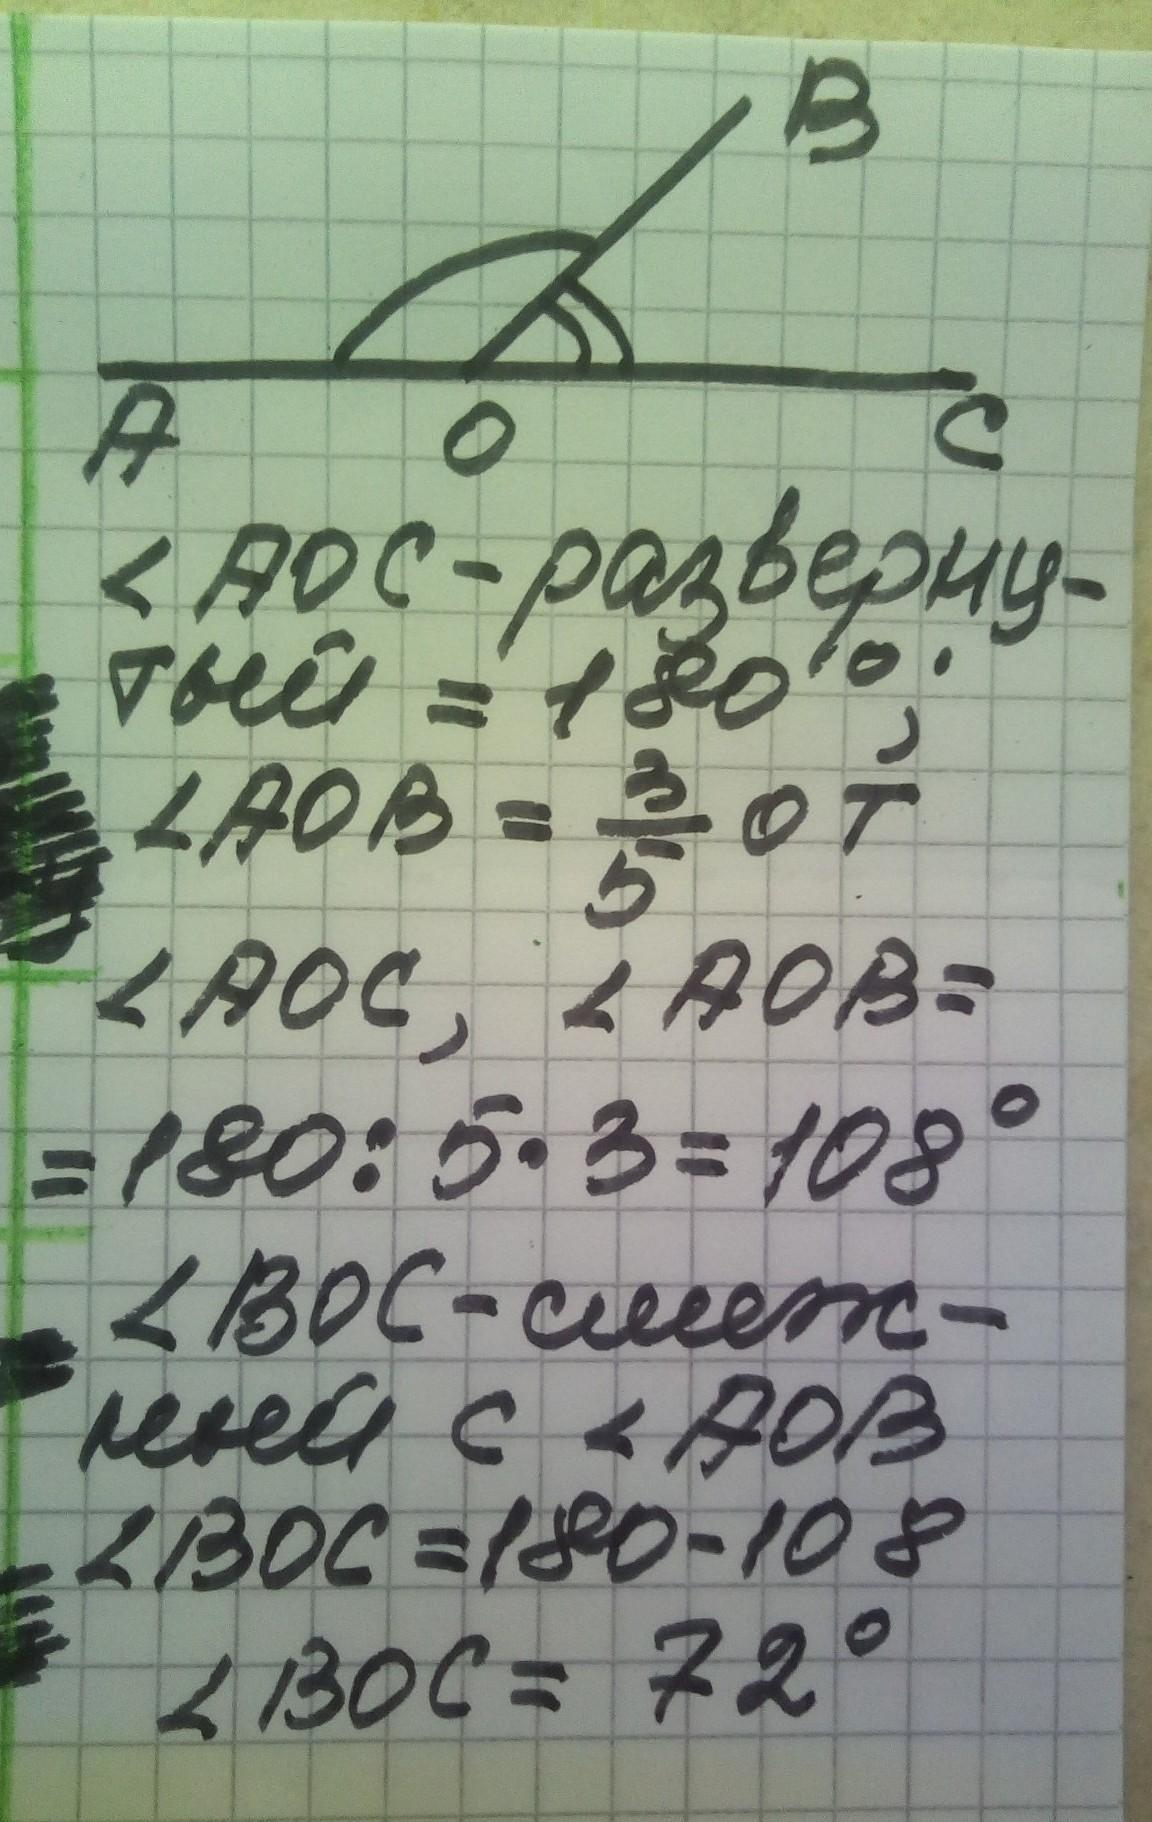 B
A O C
∠AOC - разверну-
тый = 180°;
∠AOB = 3/5 от
∠AOC, ∠AOB =
= 180 : 5 · 3 = 108°
∠BOC - смеж-
ный с ∠AOB
∠BOC = 180 - 108
∠BOC = 72°